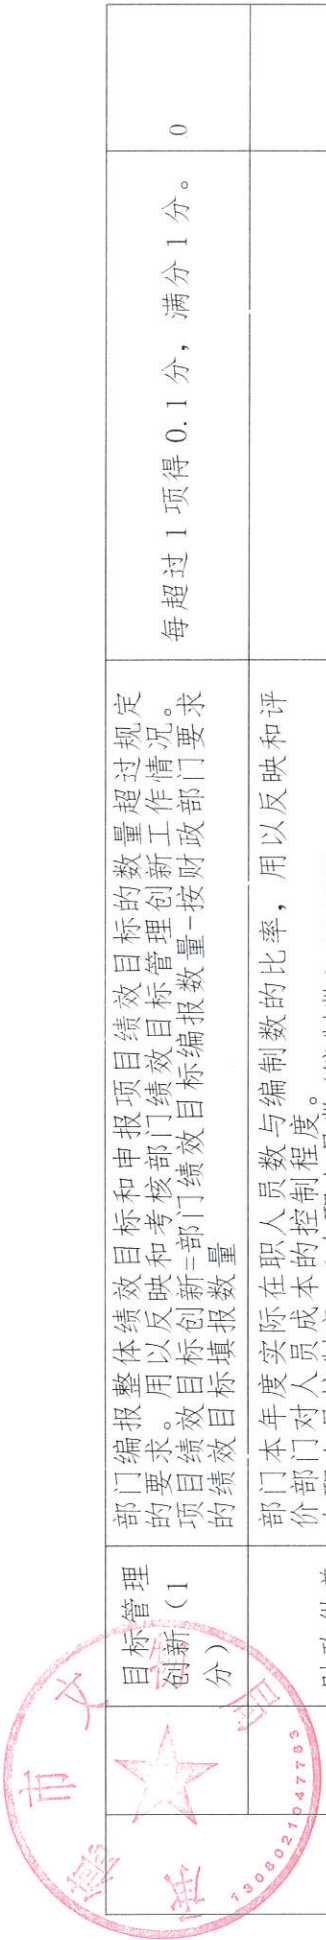 目标管理
创新（1
分）
部门编报整体绩效目标和申报项目绩效目标的数量超过规定
的要求。用以反映和考核部门绩效目标管理创新工作情况。
项目绩效目标创新=部门绩效目标编报数量-按财政部门要求
的绩效目标填报数量
每超过1项得0.1分，满分1分。
0
部门本年度实际在职人员数与编制数的比率，用以反映和评
价部门对人员成本的控制程度。
承德市文
1308021047763